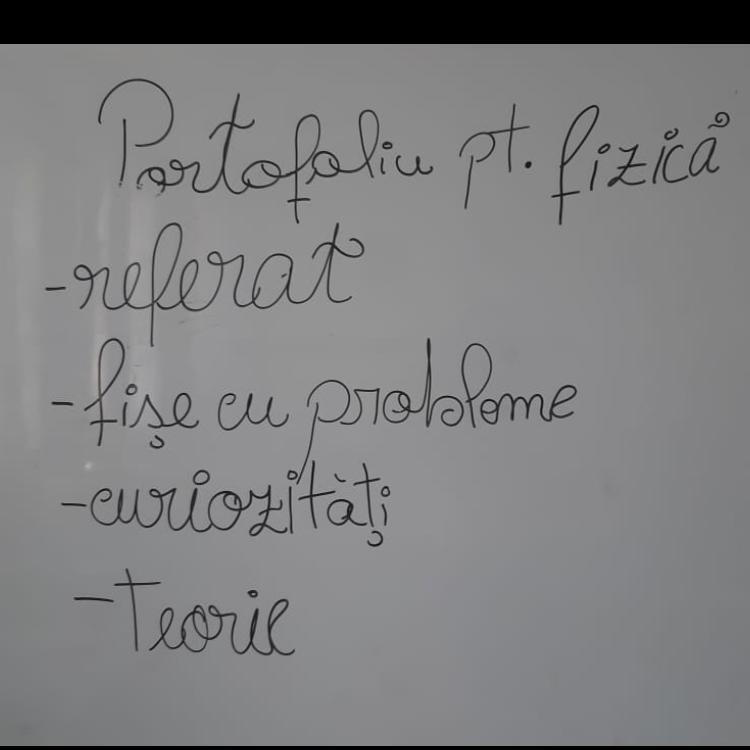 Portofoliu pt. fizică
-referat
-fișe cu probleme
-curiozități
-Teorie